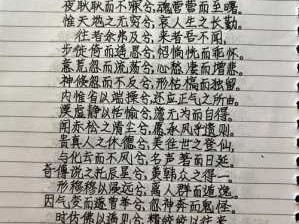 夜耿耿而不寐兮,魂营营而至曙。
惟天地之无穷兮,哀人生之长勤。
往者余弗及兮,来者吾不闻。
步徙倚而遥思兮,怊惝怳而乖怀。
意荒忽而流荡兮,心愁悽而增悲。
神倏忽而不反兮,形枯槁而独留。
内惟省以端操兮,求正气之所由。
漠虚静以恬愉兮,澹无为而自得。
闻赤松之清尘兮,愿承风乎遗则。
贵真人之休德兮,美往世之登仙。
与化去而不见兮,名声著而日延。
奇傅说之托辰星兮,羡韩众之得一。
形穆穆以浸远兮,离人群而遁逸。
因气变而遂曾举兮,忽神奔而鬼怪。
时仿佛以遥见兮,精皎皎以往来。